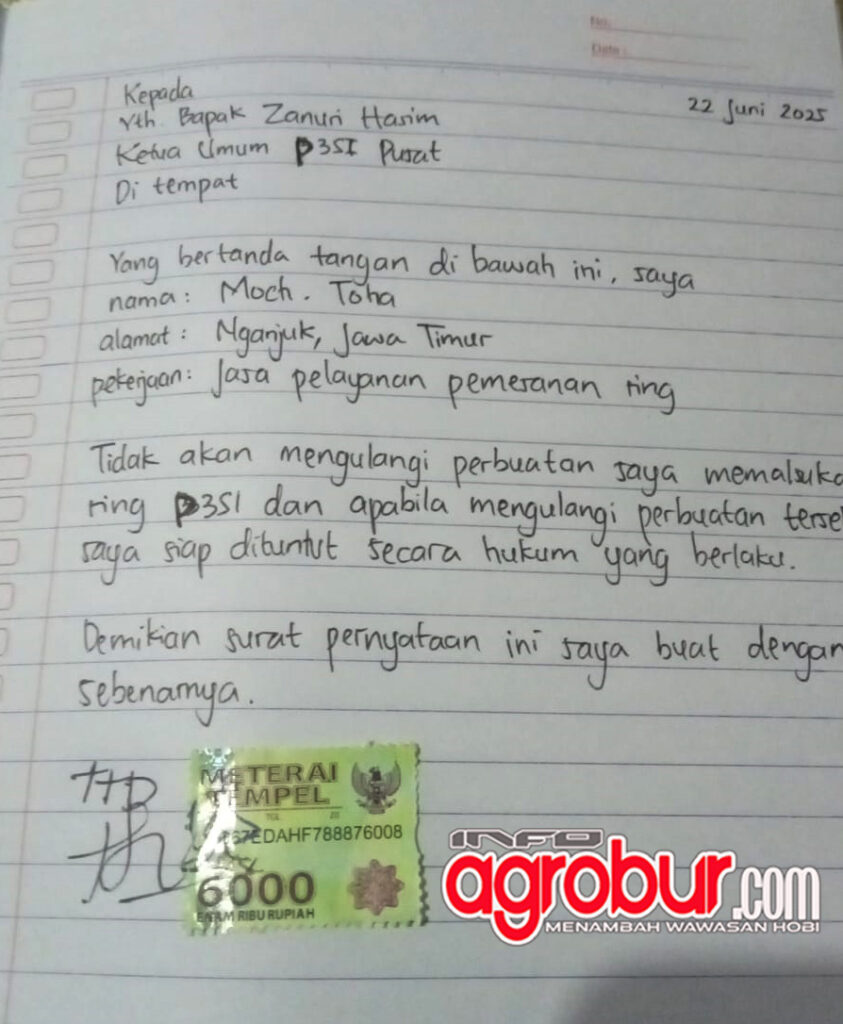 No.
Date :
22 Juni 2025
Kepada
Yth. Bapak Zanuri Hasim
Ketua Umum P3SI Pusat
Di tempat
Yang bertanda tangan di bawah ini, saya
nama : Moch. Toha
alamat : Nganjuk, Jawa Timur
pekerjaan : Jasa pelayanan pemesanan ring
Tidak akan mengulangi perbuatan saya memalsuka
ring P3SI dan apabila mengulangi perbuatan terse
saya siap dituntut secara hukum yang berlaku.
Demikian surat pernyataan ini saya buat dengan
sebenarnya.
TTD
METERAI
TEMPEL
TGL 20
67EDAHF788876008
6000
ENAM RIBU RUPIAH
INFO
agrobur.com
MENAMBAH WAWASAN HOBI